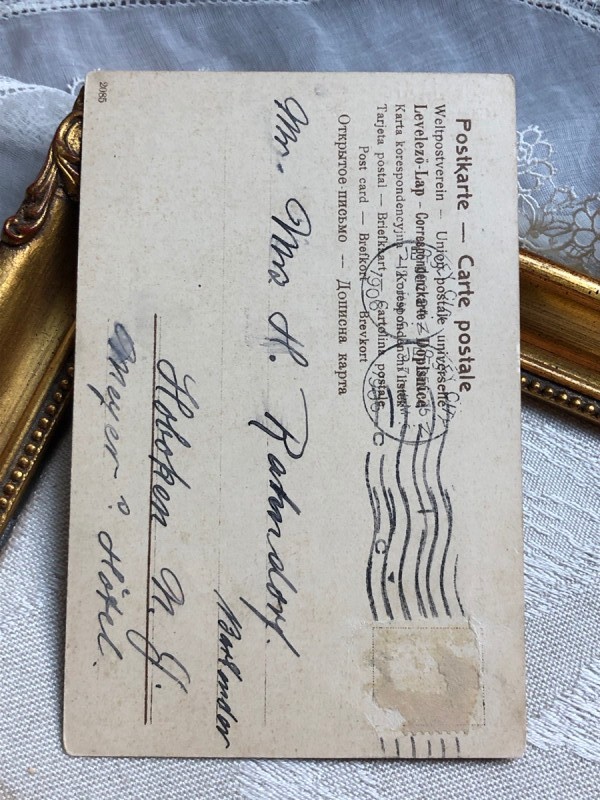 2085
Postkarte — Carte postale
Weltpostverein — Union postale universelle
Levelező-Lap - Correspondenzkarte - Dopisnice
Karta korespondencyjna — Korespondenční lístek
Tarjeta postal — Briefkaart — Cartolina postale
Post card — Brefkort — Brevkort
Открытое письмо — Дописна карта
1906
Mr. Mrs H. Rahndorf.
Bartender
Hoboken N. J.
Meyer's Hotel.